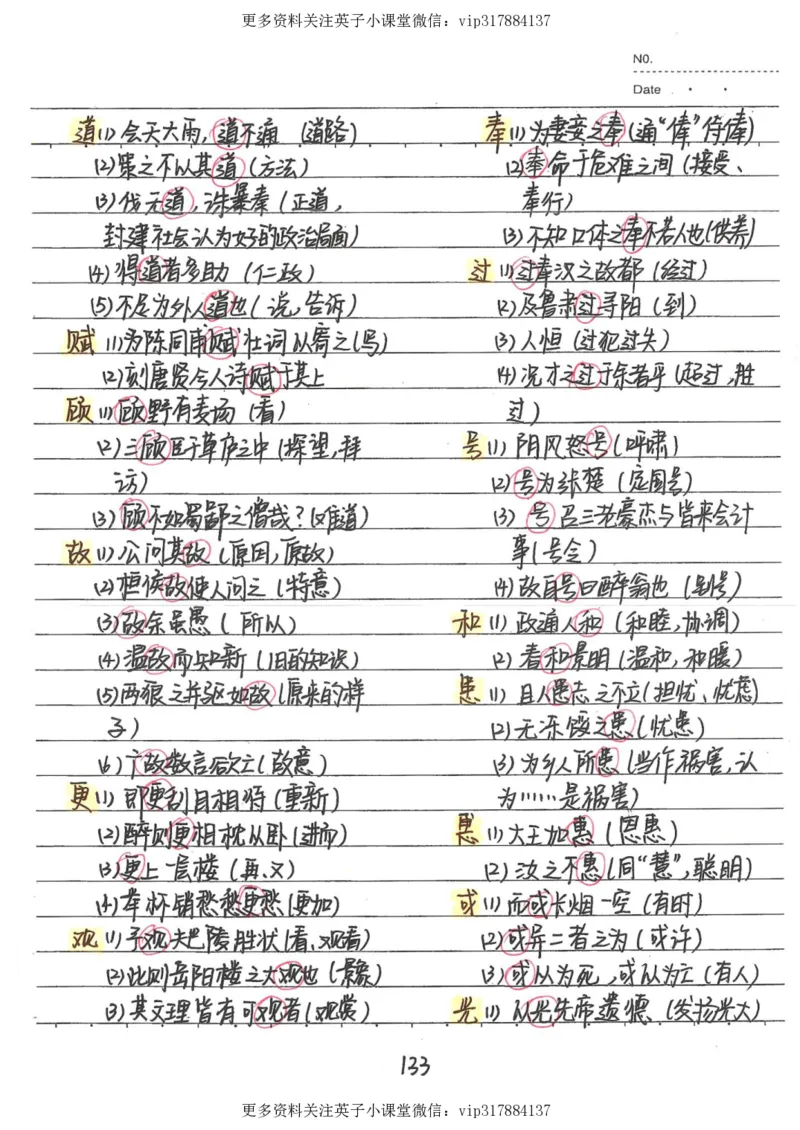 更多资料关注英子小课堂微信：vip317884137
N0.
Date . .
道(1)会天大雨，道不通 (道路)
(2)策之不以其道 (方法)
(3)伐无道，诛暴秦 (正道，
封建社会认为好的政治局面)
(4)得道者多助 (仁政)
(5)不足为外人道也 (说，告诉)
赋(1)为陈同甫赋壮词以寄之(写)
(2)刻唐贤今人诗赋于其上
顾(1)顾野有麦场 (看)
(2)三顾臣于草庐之中 (探望，拜
访)
(3)顾不如蜀鄙之僧哉？(难道)
故(1)公问其故 (原因，原故)
(2)桓侯故使人问之 (特意)
(3)故余虽愚 (所以)
(4)温故而知新 (旧的知识)
(5)两狼之并驱如故 (原来的样
子)
(6)广故数言欲亡 (故意)
更(1)即更刮目相待 (重新)
(2)醉则更相枕以卧 (进而)
(3)更上一层楼 (再、又)
(4)举杯销愁愁更愁 (更加)
观(1)予观夫巴陵胜状 (看、观看)
(2)此则岳阳楼之大观也 (景象)
(3)其文理皆有可观者 (观赏)
奉(1)为妻妾之奉 (通“俸”侍俸)
(2)奉命于危难之间 (接受、
奉行)
(3)不知口体之奉不若人也(供养)
过(1)过奉汉之故都 (经过)
(2)及鲁肃过寻阳 (到)
(3)人恒 (过犯过失)
(4)况才之过于余者乎 (超过，胜
过)
号(1)阴风怒号 (呼啸)
(2)号为张楚 (定国号)
(3)号召三老豪杰与皆来会计
事 (号令)
(4)故自号曰醉翁也 (别号)
和(1)政通人和 (和睦，协调)
(2)春和景明 (温和，和暖)
患(1)且人愚志之不立 (担忧、忧虑)
(2)无冻馁之患 (忧患)
(3)为乡人所患 (当作祸害，认
为……是祸害)
惠(1)大王加惠 (恩惠)
(2)汝之不惠 (同“慧”，聪明)
或(1)而或长烟一空 (有时)
(2)或异二者之为 (或许)
(3)或以为死，或以为亡 (有人)
光(1)以光先帝遗德 (发扬光大)
133
更多资料关注英子小课堂微信：vip317884137